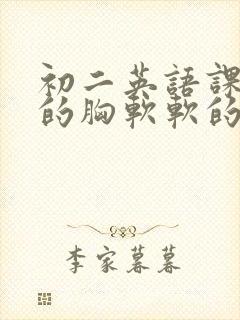 初二英語課
的胸軟軟的
李家暮暮